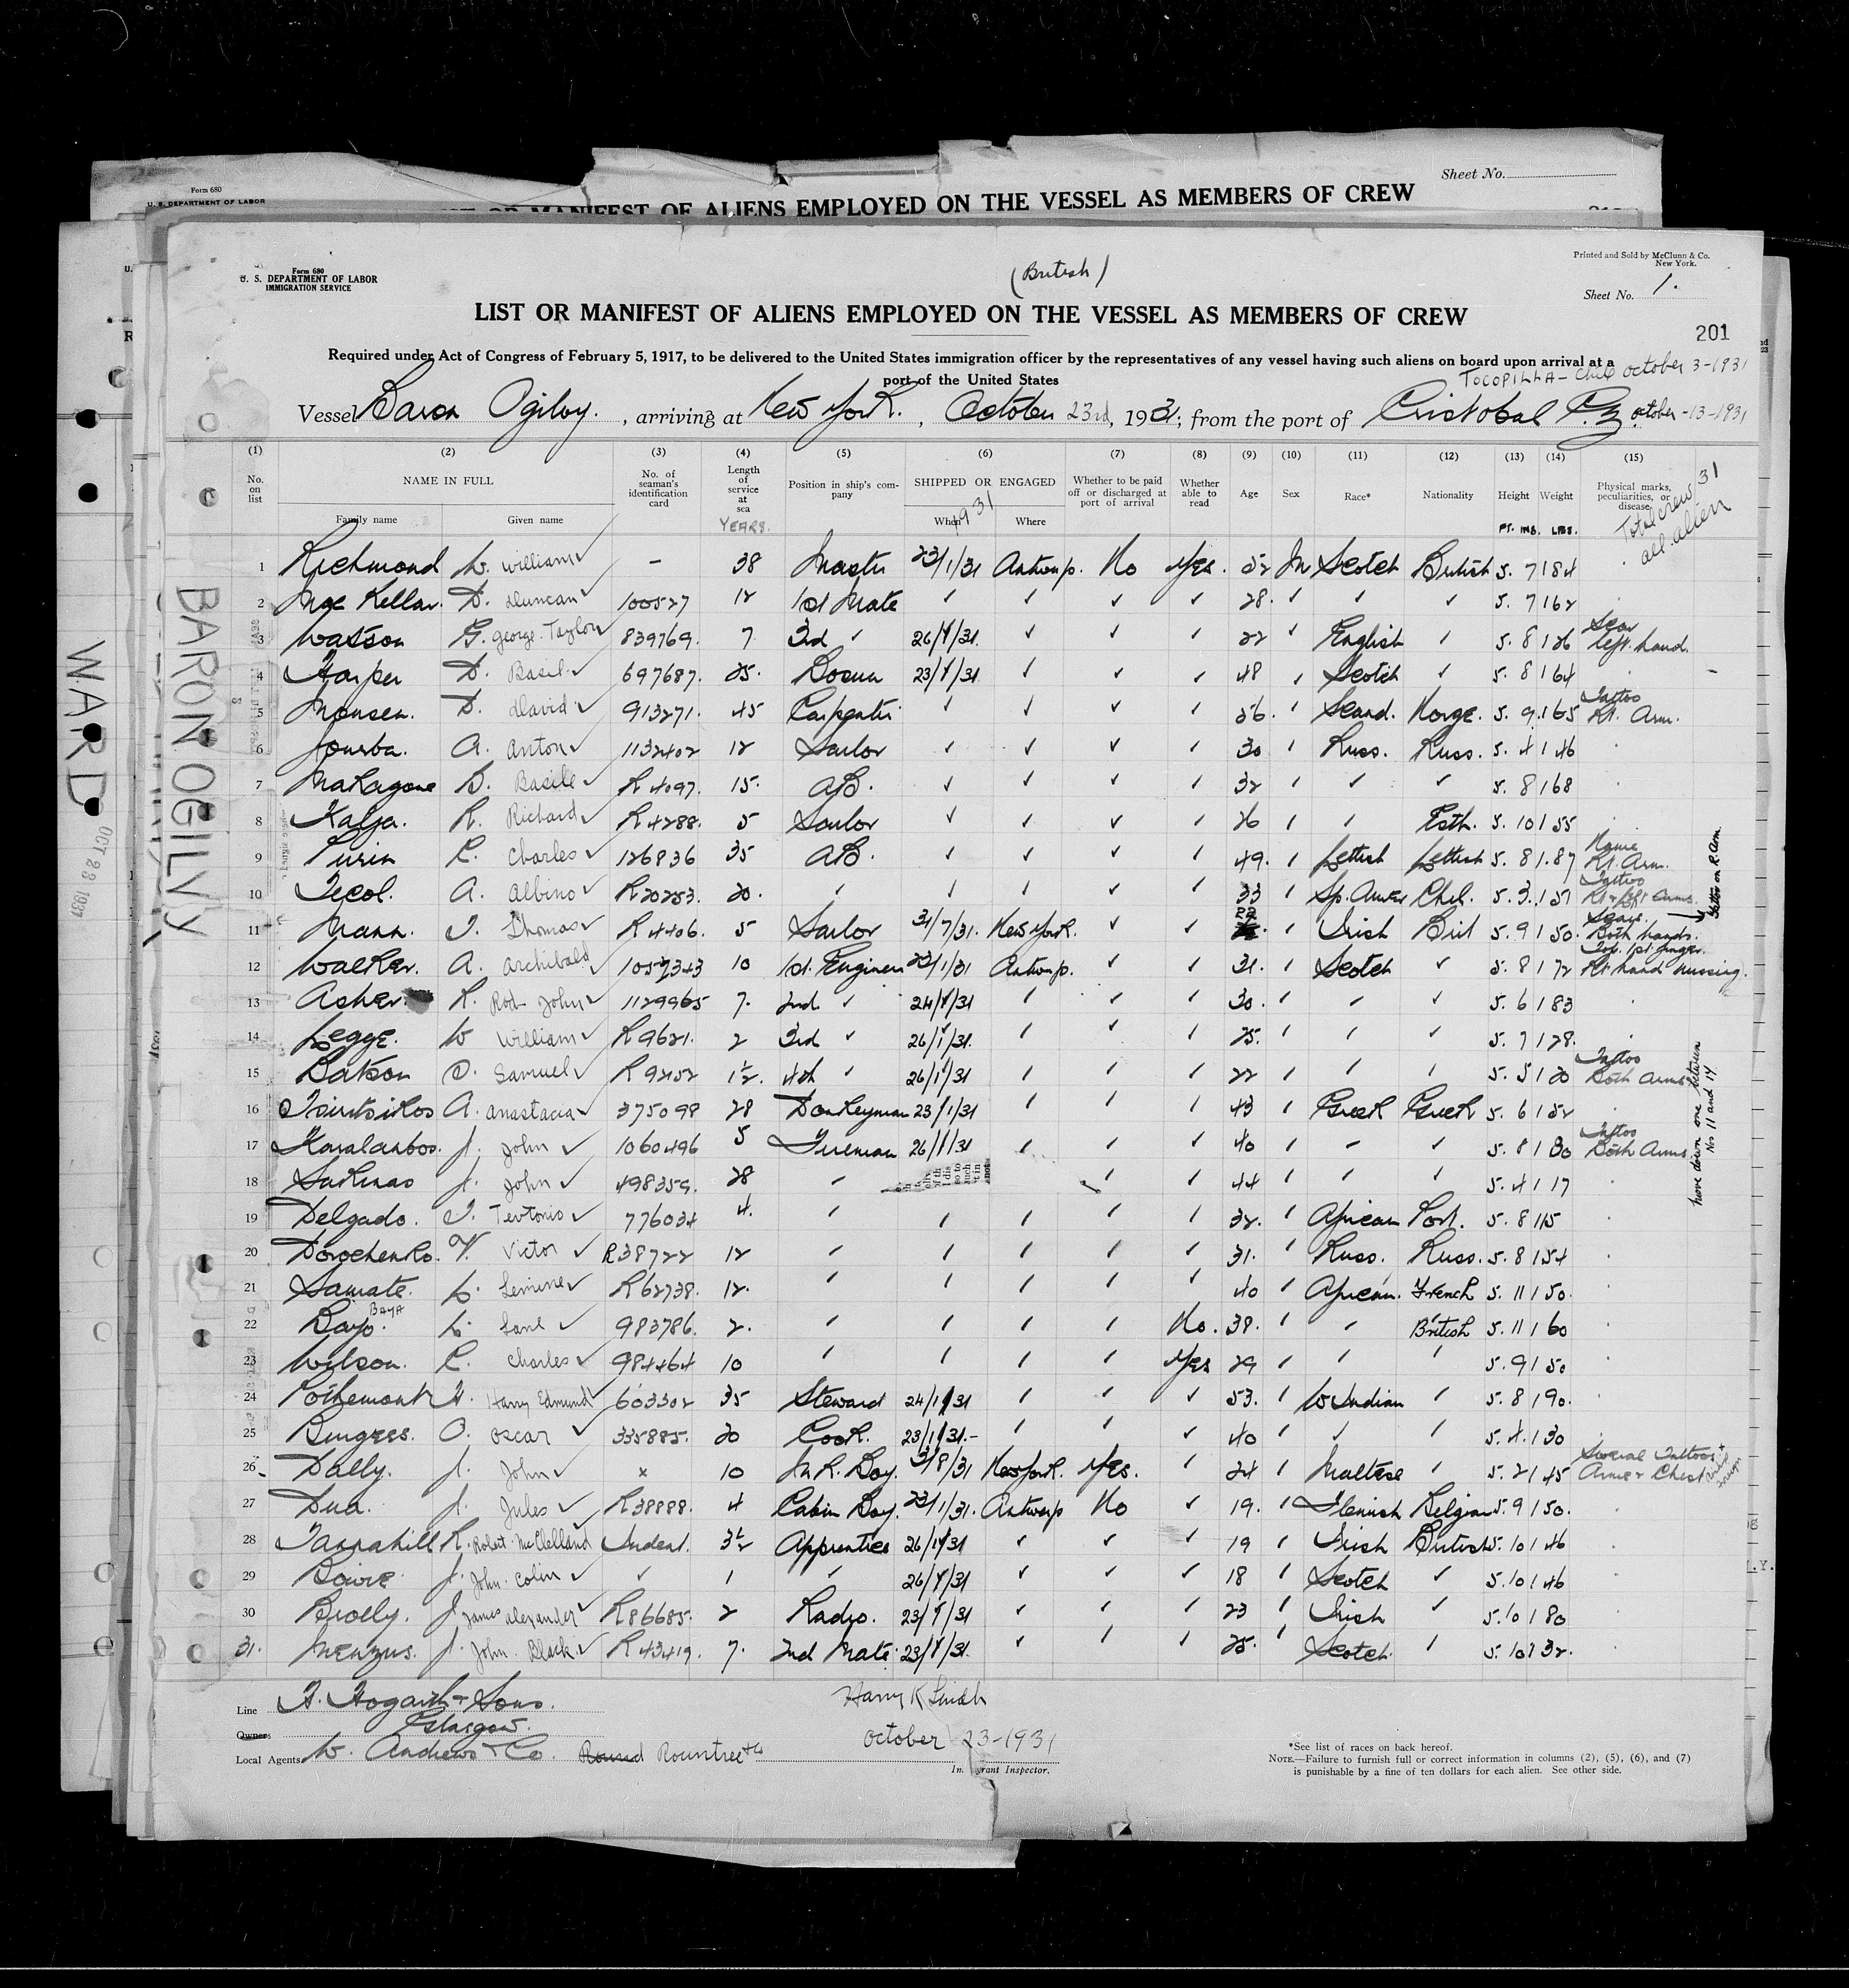 Sheet No.
Form 680
U. S. DEPARTMENT OF LABOR
MANIFEST OF ALIENS EMPLOYED ON THE VESSEL AS MEMBERS OF CREW
Printed and Sold by McClunn & Co.
New York.
Form 680
U. S. DEPARTMENT OF LABOR
IMMIGRATION SERVICE
(British)
Sheet No. 1.
LIST OR MANIFEST OF ALIENS EMPLOYED ON THE VESSEL AS MEMBERS OF CREW
201
Required under Act of Congress of February 5, 1917, to be delivered to the United States immigration officer by the representatives of any vessel having such aliens on board upon arrival at a
port of the United States
TOCOPILLA - Chile october 3-1931
Vessel Baron Ogilvy. , arriving at New York. , October 23rd, 1931; from the port of Cristobal C.Z. october-13-1931
(1) (2) (3) (4) (5) (6) (7) (8) (9) (10) (11) (12) (13) (14) (15)
No. on list NAME IN FULL No. of seaman's identification card Length of service at sea Position in ship's company SHIPPED OR ENGAGED Whether to be paid off or discharged at port of arrival Whether able to read Age Sex Race* Nationality Height Weight Physical marks, peculiarities, or disease
Family name Given name YEARS. When 1931 Where FT. INS. LBS.
Total crew 31
all alien
1 Richmond W. William ✓ - 38 Master 23/1/31 Antwerp. No Yes. 52 M Scotch British 5. 7 184
2 Mac Kellar. D. Duncan ✓ 100527 12 1st Mate ✓ ✓ ✓ ✓ 28. ✓ ✓ ✓ 5. 7 162
3 Watson G. George Taylor ✓ 839769. 7 3rd ✓ 26/1/31. ✓ ✓ ✓ 22 ✓ English ✓ 5. 8 126 Scar left hand.
4 Harper D. Basil ✓ 697687. 25. Bosun 23/1/31 ✓ ✓ ✓ 48 ✓ Scotch ✓ 5. 8 164
5 Monsen. D. David ✓ 913271. 45 Carpenter ✓ ✓ ✓ ✓ 56. ✓ Scand. Norge. 5. 9. 165 Tattoo Rt. Arm.
6 Jourba. A. Anton ✓ 1132402 12 Sailor ✓ ✓ ✓ ✓ 30 ✓ Russ. Russ. 5. 4 146
7 Makagone B. Basile ✓ R 4097. 15. AB. ✓ ✓ ✓ ✓ 32 ✓ ✓ ✓ 5. 8 168
8 Kalja. R. Richard ✓ R 4288. 5 Sailor ✓ ✓ ✓ ✓ 26 ✓ ✓ Esth. 5. 10 155
9 Purin C. Charles ✓ 126836 35 AB. ✓ ✓ ✓ ✓ 49. ✓ Lettish Lettish 5. 8 187 Name Rt. Arm.
10 Tecol. A. Albino ✓ R20253. 20. ✓ ✓ ✓ ✓ ✓ 33 ✓ Sp. Amer Chil. 5. 3. 157 Tattoo Rt & left Arms.
11 Mann. T. Thomas ✓ R 4406. 5 Sailor 31/7/31. New York. ✓ ✓ 22 ✓ Irish Brit 5. 9 150. Scars. Both hands.
12 Walker. A. Archibald 1057343 10 1st. Engineer 23/1/31 Antwerp. ✓ ✓ 31. ✓ Scotch ✓ 5. 8 172 Top. 1st finger Rt hand missing.
13 Asher. R. Rod John ✓ 1129965 7. 2nd ✓ 24/1/31 ✓ ✓ ✓ 30. ✓ ✓ ✓ 5. 6 183
14 Legge. W William ✓ R 9621. 2 3rd ✓ 26/1/31. ✓ ✓ ✓ 25. ✓ ✓ ✓ 5. 7 128.
15 Batson S. Samuel ✓ R 9252 1½. 4th ✓ 26/1/31 ✓ ✓ ✓ 22 ✓ ✓ ✓ 5. 5 120 Tattoo Both Arms
16 Tsintsikos A. Anastacia ✓ 375098 28 Donkeyman 23/1/31 ✓ ✓ ✓ 43 ✓ Greek Greek 5. 6 152
17 Karalambos. J. John ✓ 1060496 5 Fireman 26/1/31 ✓ ✓ ✓ 40 ✓ ✓ ✓ 5. 8 180 Tattoo Both Arms
18 Sakinas J. John ✓ 498359. 28 ✓ ✓ ✓ 44 ✓ ✓ ✓ 5. 4 117
19 Delgado. T. Teotonio ✓ 776034 4. ✓ ✓ ✓ ✓ ✓ 32. ✓ African Port. 5. 8 115
20 Dorochenko. V. Victor ✓ R38722 12 ✓ ✓ ✓ ✓ ✓ 31. ✓ Russ. Russ. 5. 8 154
21 Samate. L. ✓ R62738. 12. ✓ ✓ ✓ ✓ ✓ 40 ✓ African. French 5. 11 150.
22 Bayo. BAYA L. Lane ✓ 983786. 2. ✓ ✓ ✓ ✓ No. 38. ✓ ✓ British 5. 11 160
23 Wilson. C. Charles ✓ 984464 10 ✓ ✓ ✓ ✓ Yes 29 ✓ ✓ ✓ 5. 9 150
24 Pothemont H. Harry Edmund ✓ 603302 35 Steward 24/1/31 ✓ ✓ ✓ 53. ✓ W Indian ✓ 5. 8 190.
25 Burgess. O. Oscar ✓ 335885. 20 Cook. 23/1/31.- ✓ ✓ ✓ 40 ✓ ✓ ✓ 5. 4. 130
26 Dally. J. John ✓ x 10 M.R. Boy. 3/8/31 New York. Yes. ✓ 24 ✓ Maltese ✓ 5. 2 145 Several Tattoos Arms & Chest
27 Dua. J. Jules ✓ R38888. 4 Cabin Boy. 23/1/31. Antwerp No ✓ 19. ✓ Flemish Belgian 5. 9 150.
28 Tannahill R. Robert McClelland Indent. 3½ Apprentice 26/1/31 ✓ ✓ ✓ 19 ✓ Irish British 5. 10 146
29 Bowie J. John Colin ✓ ✓ 1 ✓ 26/1/31 ✓ ✓ ✓ 18 ✓ Scotch ✓ 5. 10 146
30 Brolly. J James Alexander ✓ R86685. 2 Radio. 23/1/31 ✓ ✓ ✓ 23 ✓ Irish ✓ 5. 10 180
31. Menzies. J. John Black ✓ R43419. 7. 2nd Mate 23/1/31. ✓ ✓ ✓ 25. ✓ Scotch. ✓ 5. 10 132.
Tattoo on R. Arm.
move down one between
Nos 11 and 14
Line H. Hogarth & Sons.
Owners Glasgow.
Local Agents W. Andrews & Co. Round Rountree & Co
Harry K Lindh
October 23-1931
Immigrant Inspector.
*See list of races on back hereof.
NOTE.—Failure to furnish full or correct information in columns (2), (5), (6), and (7)
is punishable by a fine of ten dollars for each alien. See other side.
BARON OGILVY
WARD
OCT 23 1931